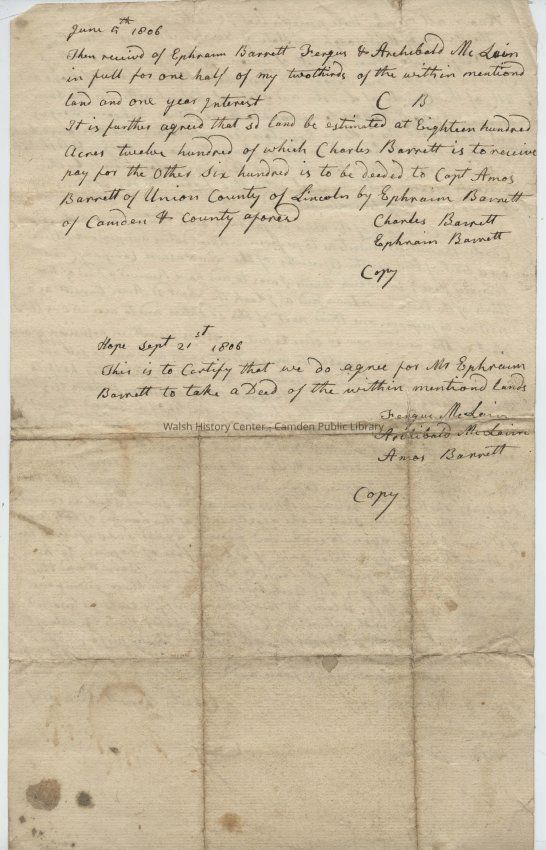 June 5th 1806
Then receivd of Ephraim Barrett Fergus & Archibald Mc Lain
in full for one half of my twothirds of the within mentiond
land and one year Interest C B
It is further agreed that sd land be estimated at Eighteen hundred
Acres twelve hundred of which Charles Barrett is to receive
pay for the Other Six hundred is to be deeded to Capt Amos
Barrett of Union County of Lincoln by Ephraim Barrett
of Camden & County aforesd
Charles Barrett
Ephraim Barrett
Copy
Hope Sept 21st 1806
This is to Certify that we do agree for Mr Ephraim
Barrett to take a Deed of the within mentiond lands
Fergus Mc Lain
Walsh History Center - Camden Public Library
Archibald Mc Lain
Amos Barrett
Copy